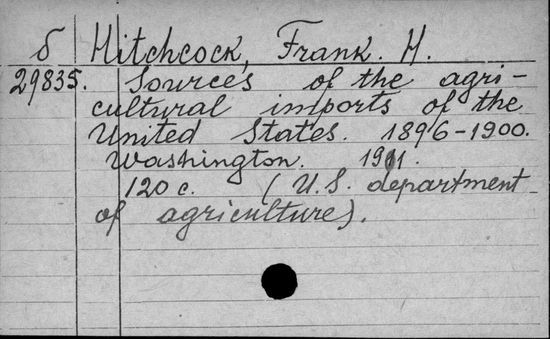 б Hitchcock, Frank. H.
29835. Sources of the agri-
cultural imports of the
United States. 1896-1900.
Washington. 1911.
120 c. (U.S. department
of agriculture).